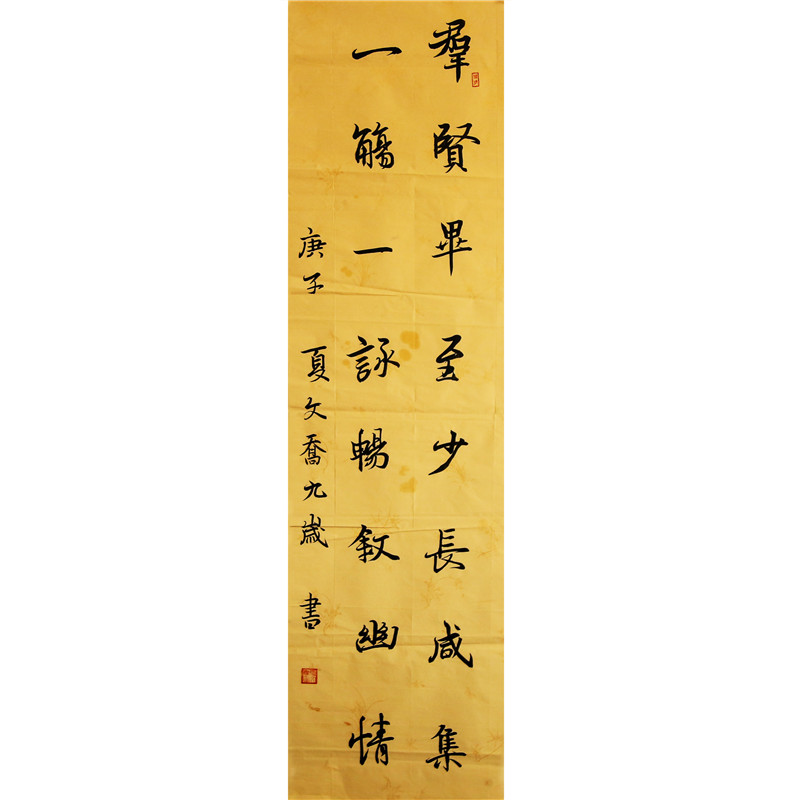 羣賢畢至少長咸集
一觴一詠暢敘幽情
庚子 夏文喬九歲 書